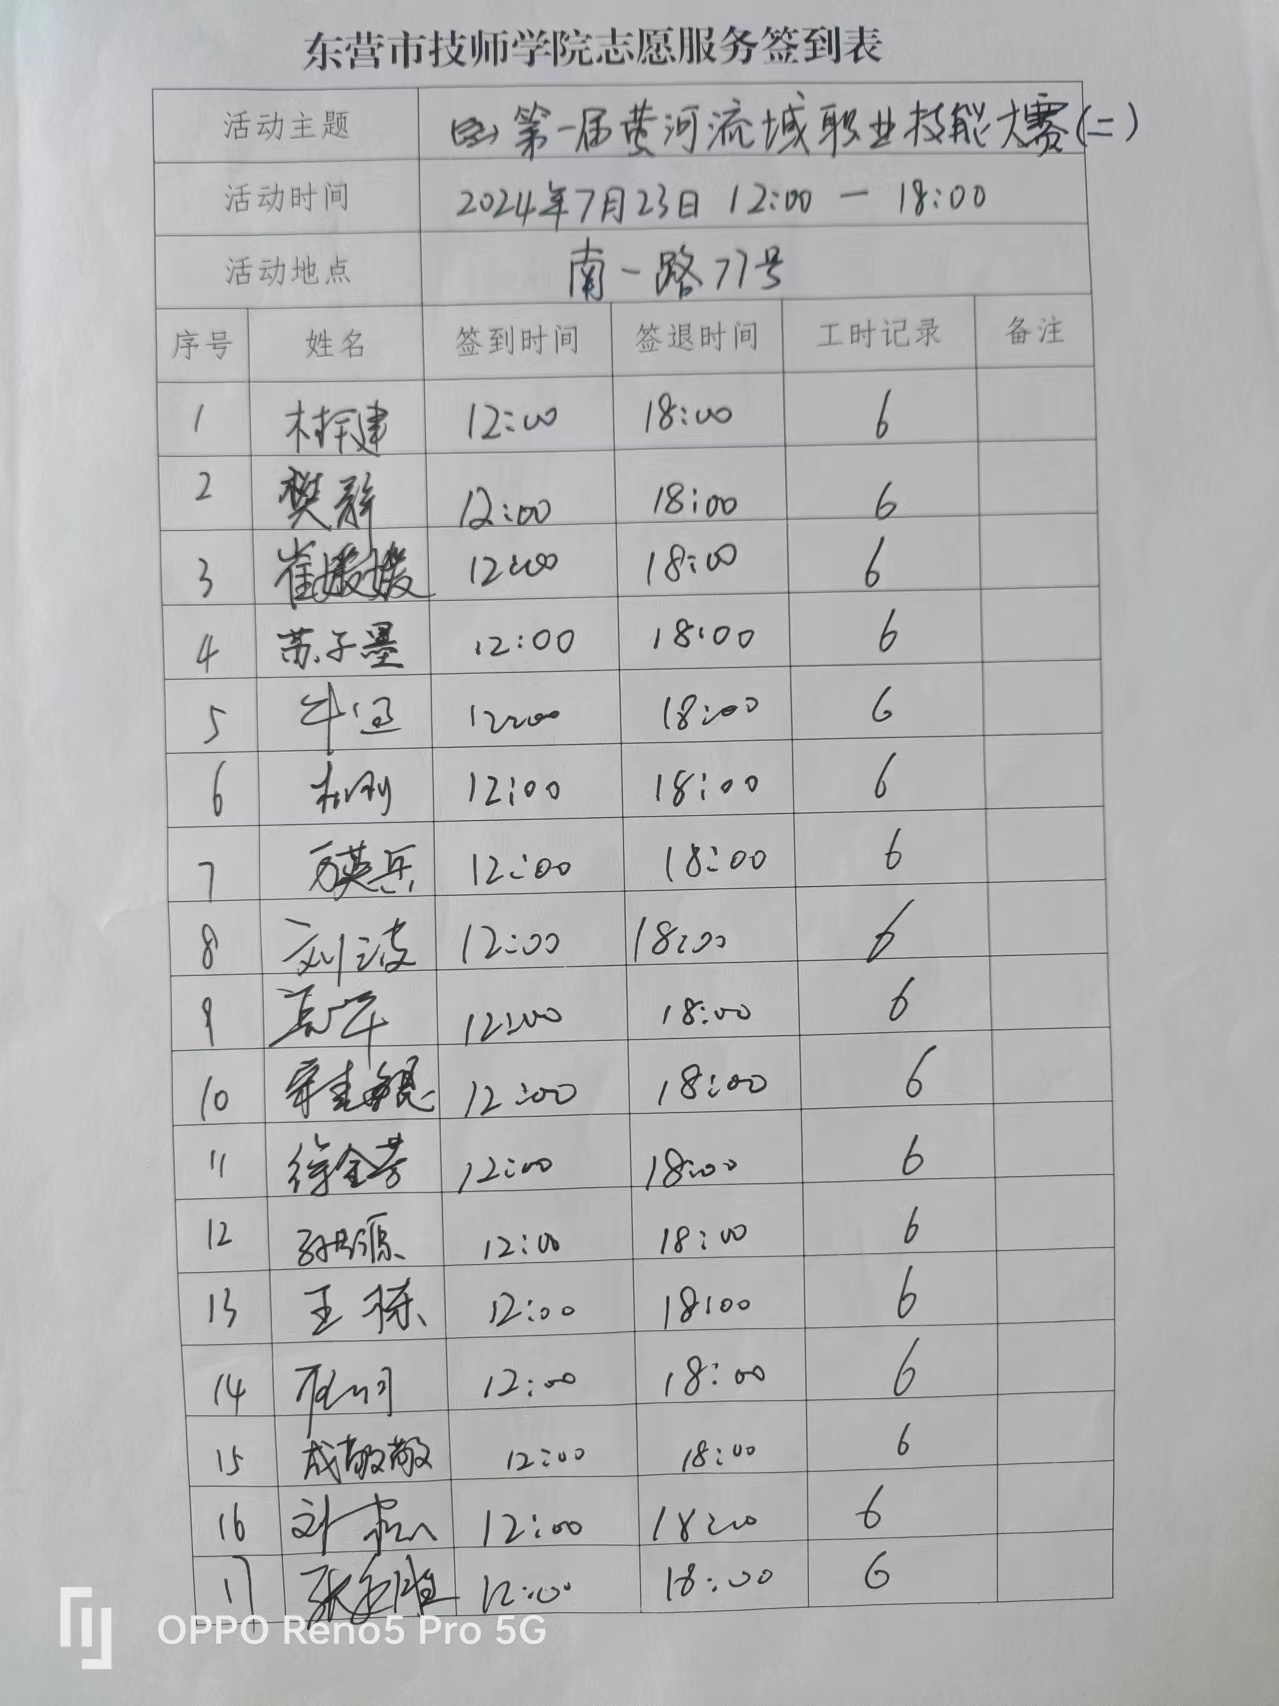 东营市技师学院志愿服务签到表
活动主题 第一届黄河流域职业技能大赛(二)
活动时间 2024年7月23日 12:00 — 18:00
活动地点 南一路77号
序号 姓名 签到时间 签退时间 工时记录 备注
1 12:00 18:00 6
2 樊静 12:00 18:00 6
3 崔媛媛 12:00 18:00 6
4 苏子墨 12:00 18:00 6
5 12:00 18:00 6
6 12:00 18:00 6
7 万英兵 12:00 18:00 6
8 刘波 12:00 18:00 6
9 12:00 18:00 6
10 12:00 18:00 6
11 徐金芳 12:00 18:00 6
12 12:00 18:00 6
13 王栋 12:00 18:00 6
14 12:00 18:00 6
15 成敬敬 12:00 18:00 6
16 12:00 18:00 6
17 12:00 18:00 6
OPPO Reno5 Pro 5G